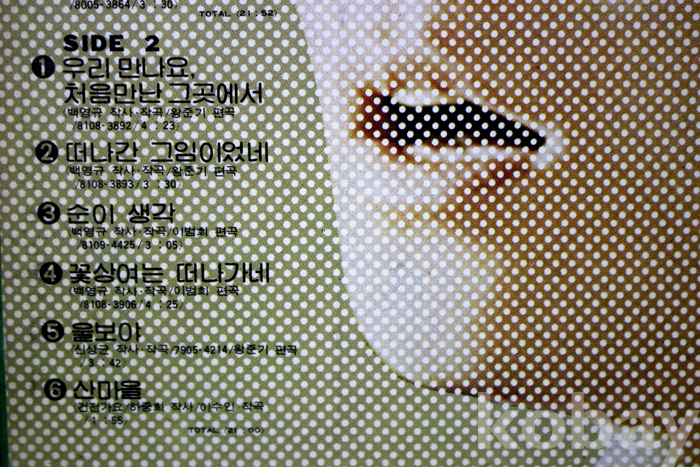 /8005-3864/3 : 30)
TOTAL (21 : 52)
SIDE 2
❶ 우리 만나요,
처음만난 그곳에서
(백영규 작사·작곡/왕준기 편곡
/8108-3892/4 : 23)
❷ 떠나간 그임이었네
(백영규 작사·작곡/왕준기 편곡
/8108-3893/3 : 30)
❸ 순이 생각
(백영규 작사·작곡/이범희 편곡
/8109-4425/3 : 05)
❹ 꽃상여는 떠나가네
(백영규 작사·작곡/이범희 편곡
/8108-3906/4 : 25)
❺ 울보야
(신상균 작사·작곡/7905-4214/왕준기 편곡
/3 : 42)
❻ 산마을
(건전가요/하중희 작사/이수인 작곡
/1 : 55)
TOTAL (21 : 00)
kobay